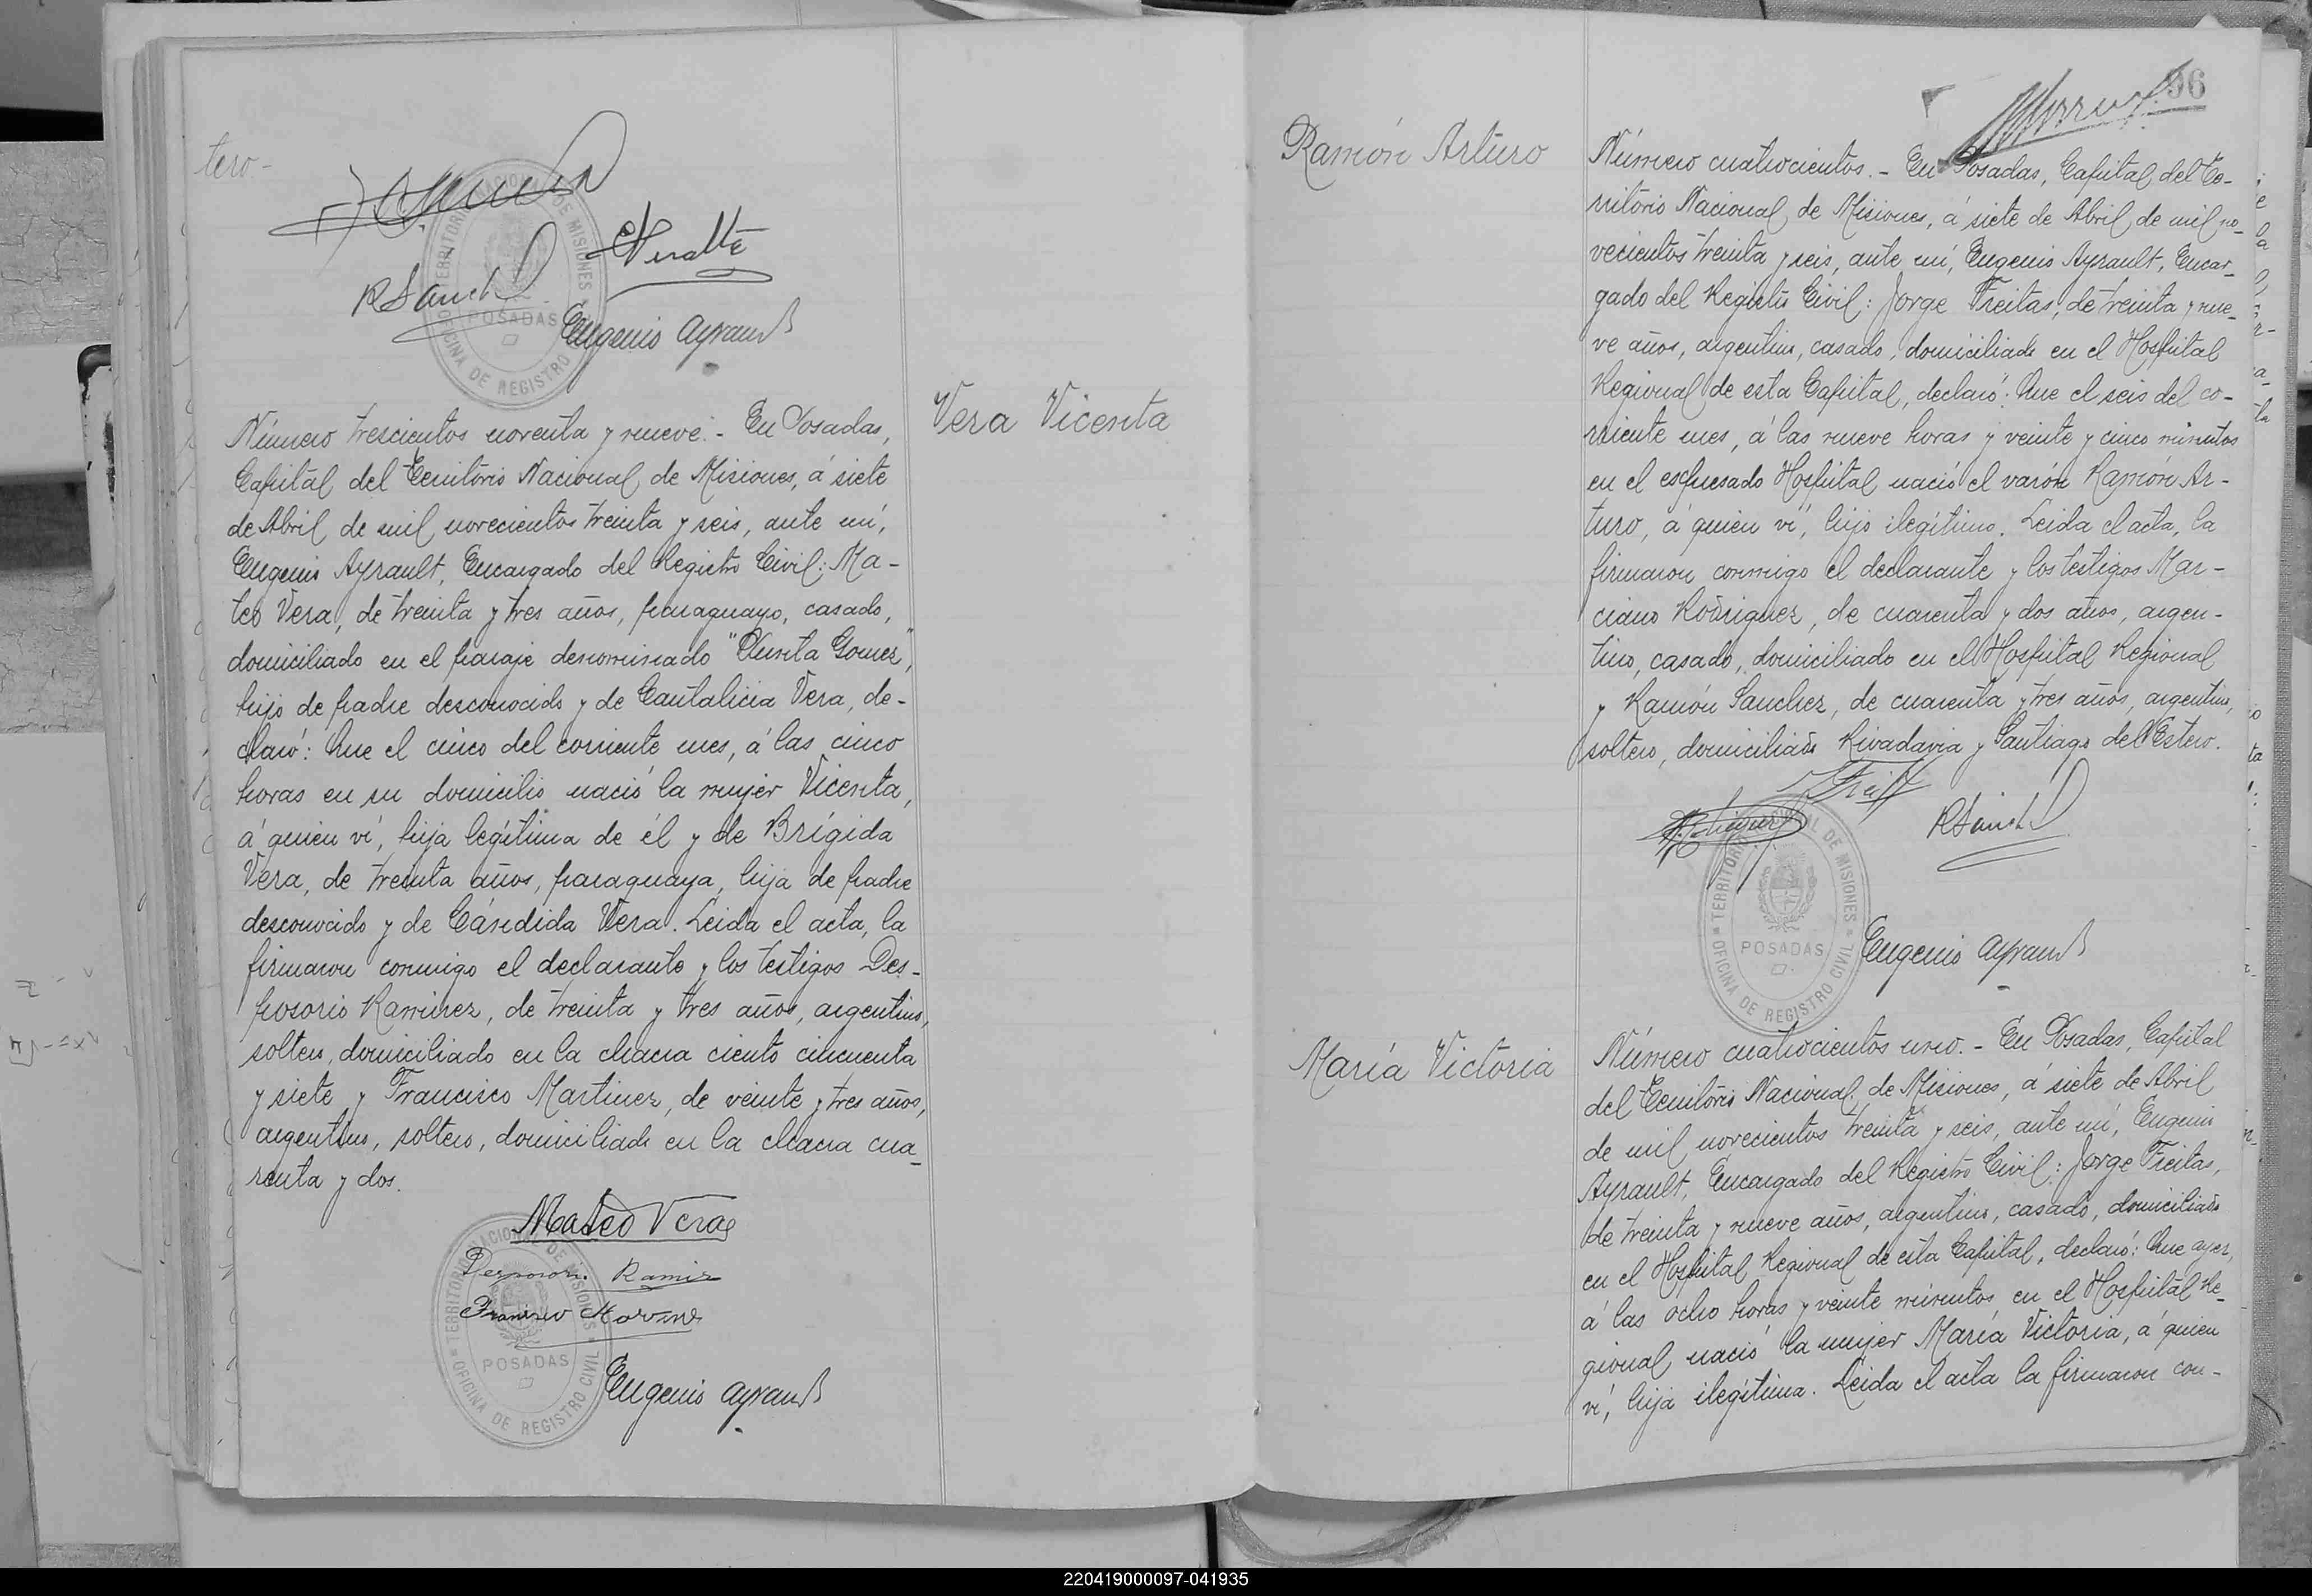 tero-
TERRITORIO NACIONAL DE MISIONES
POSADAS
OFICINA DE REGISTRO
R Sanch
Eugenio Ayrault
Número trescientos noventa y nueve.- En Posadas,
Capital del Territorio Nacional de Misiones, á siete
de Abril de mil novecientos treinta y seis, ante mí,
Eugenio Ayrault, Encargado del Registro Civil: Ma-
teo Vera, de treinta y tres años, paraguayo, casado,
domiciliado en el paraje denominado "Punta Gomez",
hijo de padre desconocido y de Cantalicia Vera, de-
claró: Que el cinco del corriente mes, á las cinco
horas en su domicilio nació la mujer Vicenta,
á quien ví, hija legítima de él y de Brígida
Vera, de treinta años, paraguaya, hija de padre
desconocido y de Cándida Vera. Leida el acta, la
firmaron conmigo el declarante y los testigos Des-
posorio Ramirez, de treinta y tres años, argentino,
soltero, domiciliado en la chacra ciento cincuenta
y siete y Francisco Martinez, de veinte y tres años,
argentino, soltero, domiciliado en la chacra cua-
renta y dos.
Mateo Vera
Ramir
Francisco
TERRITORIO NACIONAL DE MISIONES
POSADAS
OFICINA DE REGISTRO CIVIL
Eugenio Ayrault
Vera Vicenta
96
Ramón Arturo
Número cuatrocientos.- En Posadas, Capital del Te-
rritorio Nacional de Misiones, á siete de Abril de mil no-
vecientos treinta y seis, ante mí, Eugenio Ayrault, Encar-
gado del Registro Civil: Jorge Freitas, de treinta y nue-
ve años, argentino, casado, domiciliado en el Hospital
Regional de esta Capital, declaró: Que el seis del co-
rriente mes, á las nueve horas y veinte y cinco minutos
en el expresado Hospital nació el varón Ramón Ar-
turo, á quien ví, hijo ilegítimo. Leida el acta, la
firmaron conmigo el declarante y los testigos Mar-
ciano Rodriguez, de cuarenta y dos años, argen-
tino, casado, domiciliado en el Hospital Regional
y Ramón Sanchez, de cuarenta y tres años, argentino,
soltero, domiciliado Rivadavia y Santiago del Estero.
R Sanch
TERRITORIO NACIONAL DE MISIONES
POSADAS
OFICINA DE REGISTRO CIVIL
Eugenio Ayrault
María Victoria
Número cuatrocientos uno.- En Posadas, Capital
del Territorio Nacional de Misiones, á siete de Abril
de mil novecientos treinta y seis, ante mí, Eugenio
Ayrault, Encargado del Registro Civil: Jorge Freitas,
de treinta y nueve años, argentino, casado, domiciliado
en el Hospital Regional de esta Capital, declaró: Que ayer,
á las ocho horas y veinte minutos, en el Hospital Re-
gional nació la mujer María Victoria, á quien
ví, hija ilegítima. Leida el acta la firmaron con-
220419000097-041935